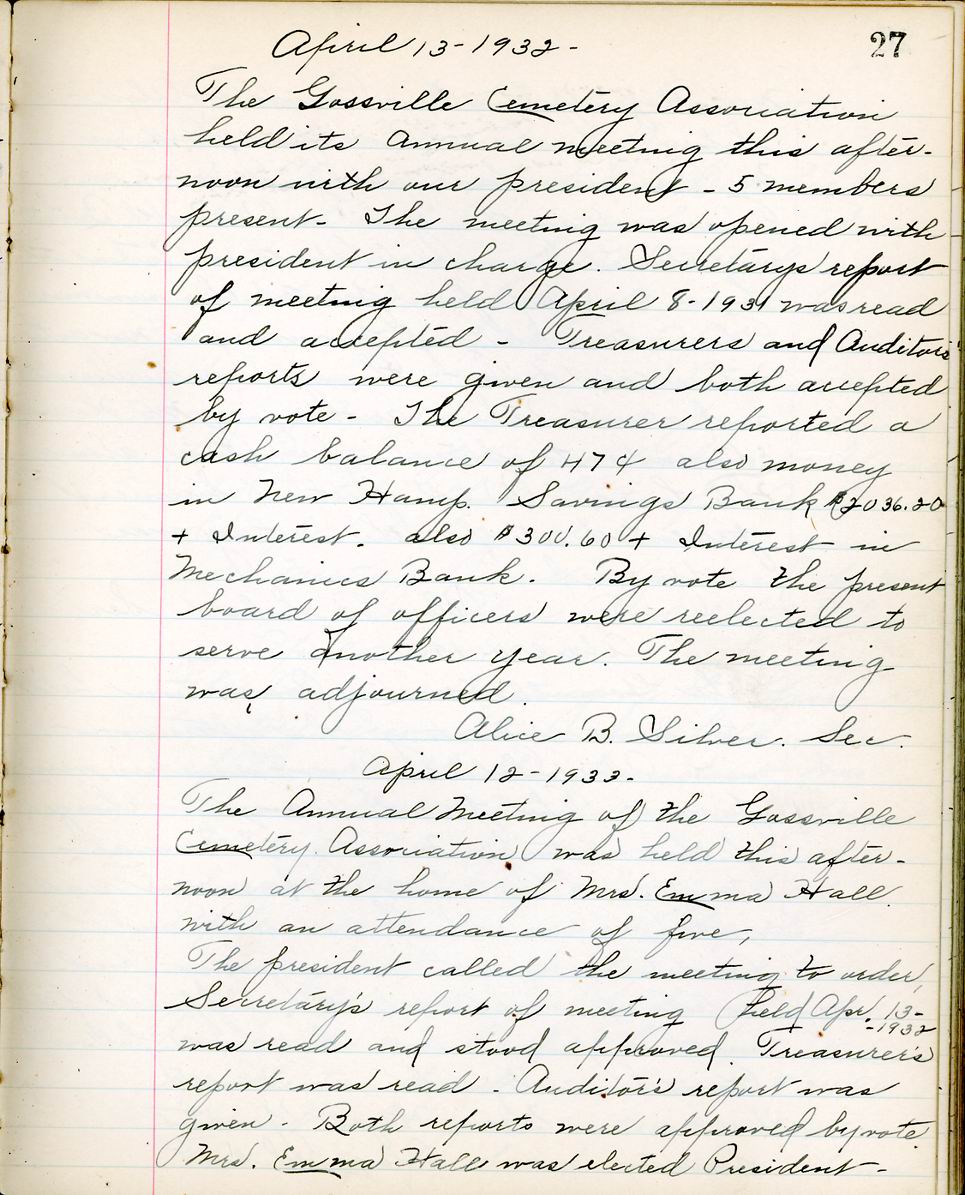 27
April 13-1932-
The Gossville Cemetery Association
held its annual meeting this after-
noon with our president - 5 members
present- The meeting was opened with
president in charge. Secretarys report
of meeting held April 8-1931 was read
and accepted - Treasurers and Auditors
reports were given and both accepted
by vote - The Treasurer reported a
cash balance of also money
in New Hamp. Savings Bank $2036.20
+ Interest. also $300.60 + Interest in
Mechanics Bank. By vote the present
board of officers were reelected to
serve another year. The meeting
was adjourned.
Alice B. Silver. Sec.
April 12-1933.
The Annual Meeting of the Gossville
Cemetery Association was held this after-
noon at the home of Mrs. Emma Hall.
with an attendance of five,
The president called the meeting to order,
Secretary's report of meeting held Apr. 13-
-1932
was read and stood approved. Treasurer's
report was read - Auditor's report was
given - Both reports were approved by vote
Mrs. Emma Hall was elected President-